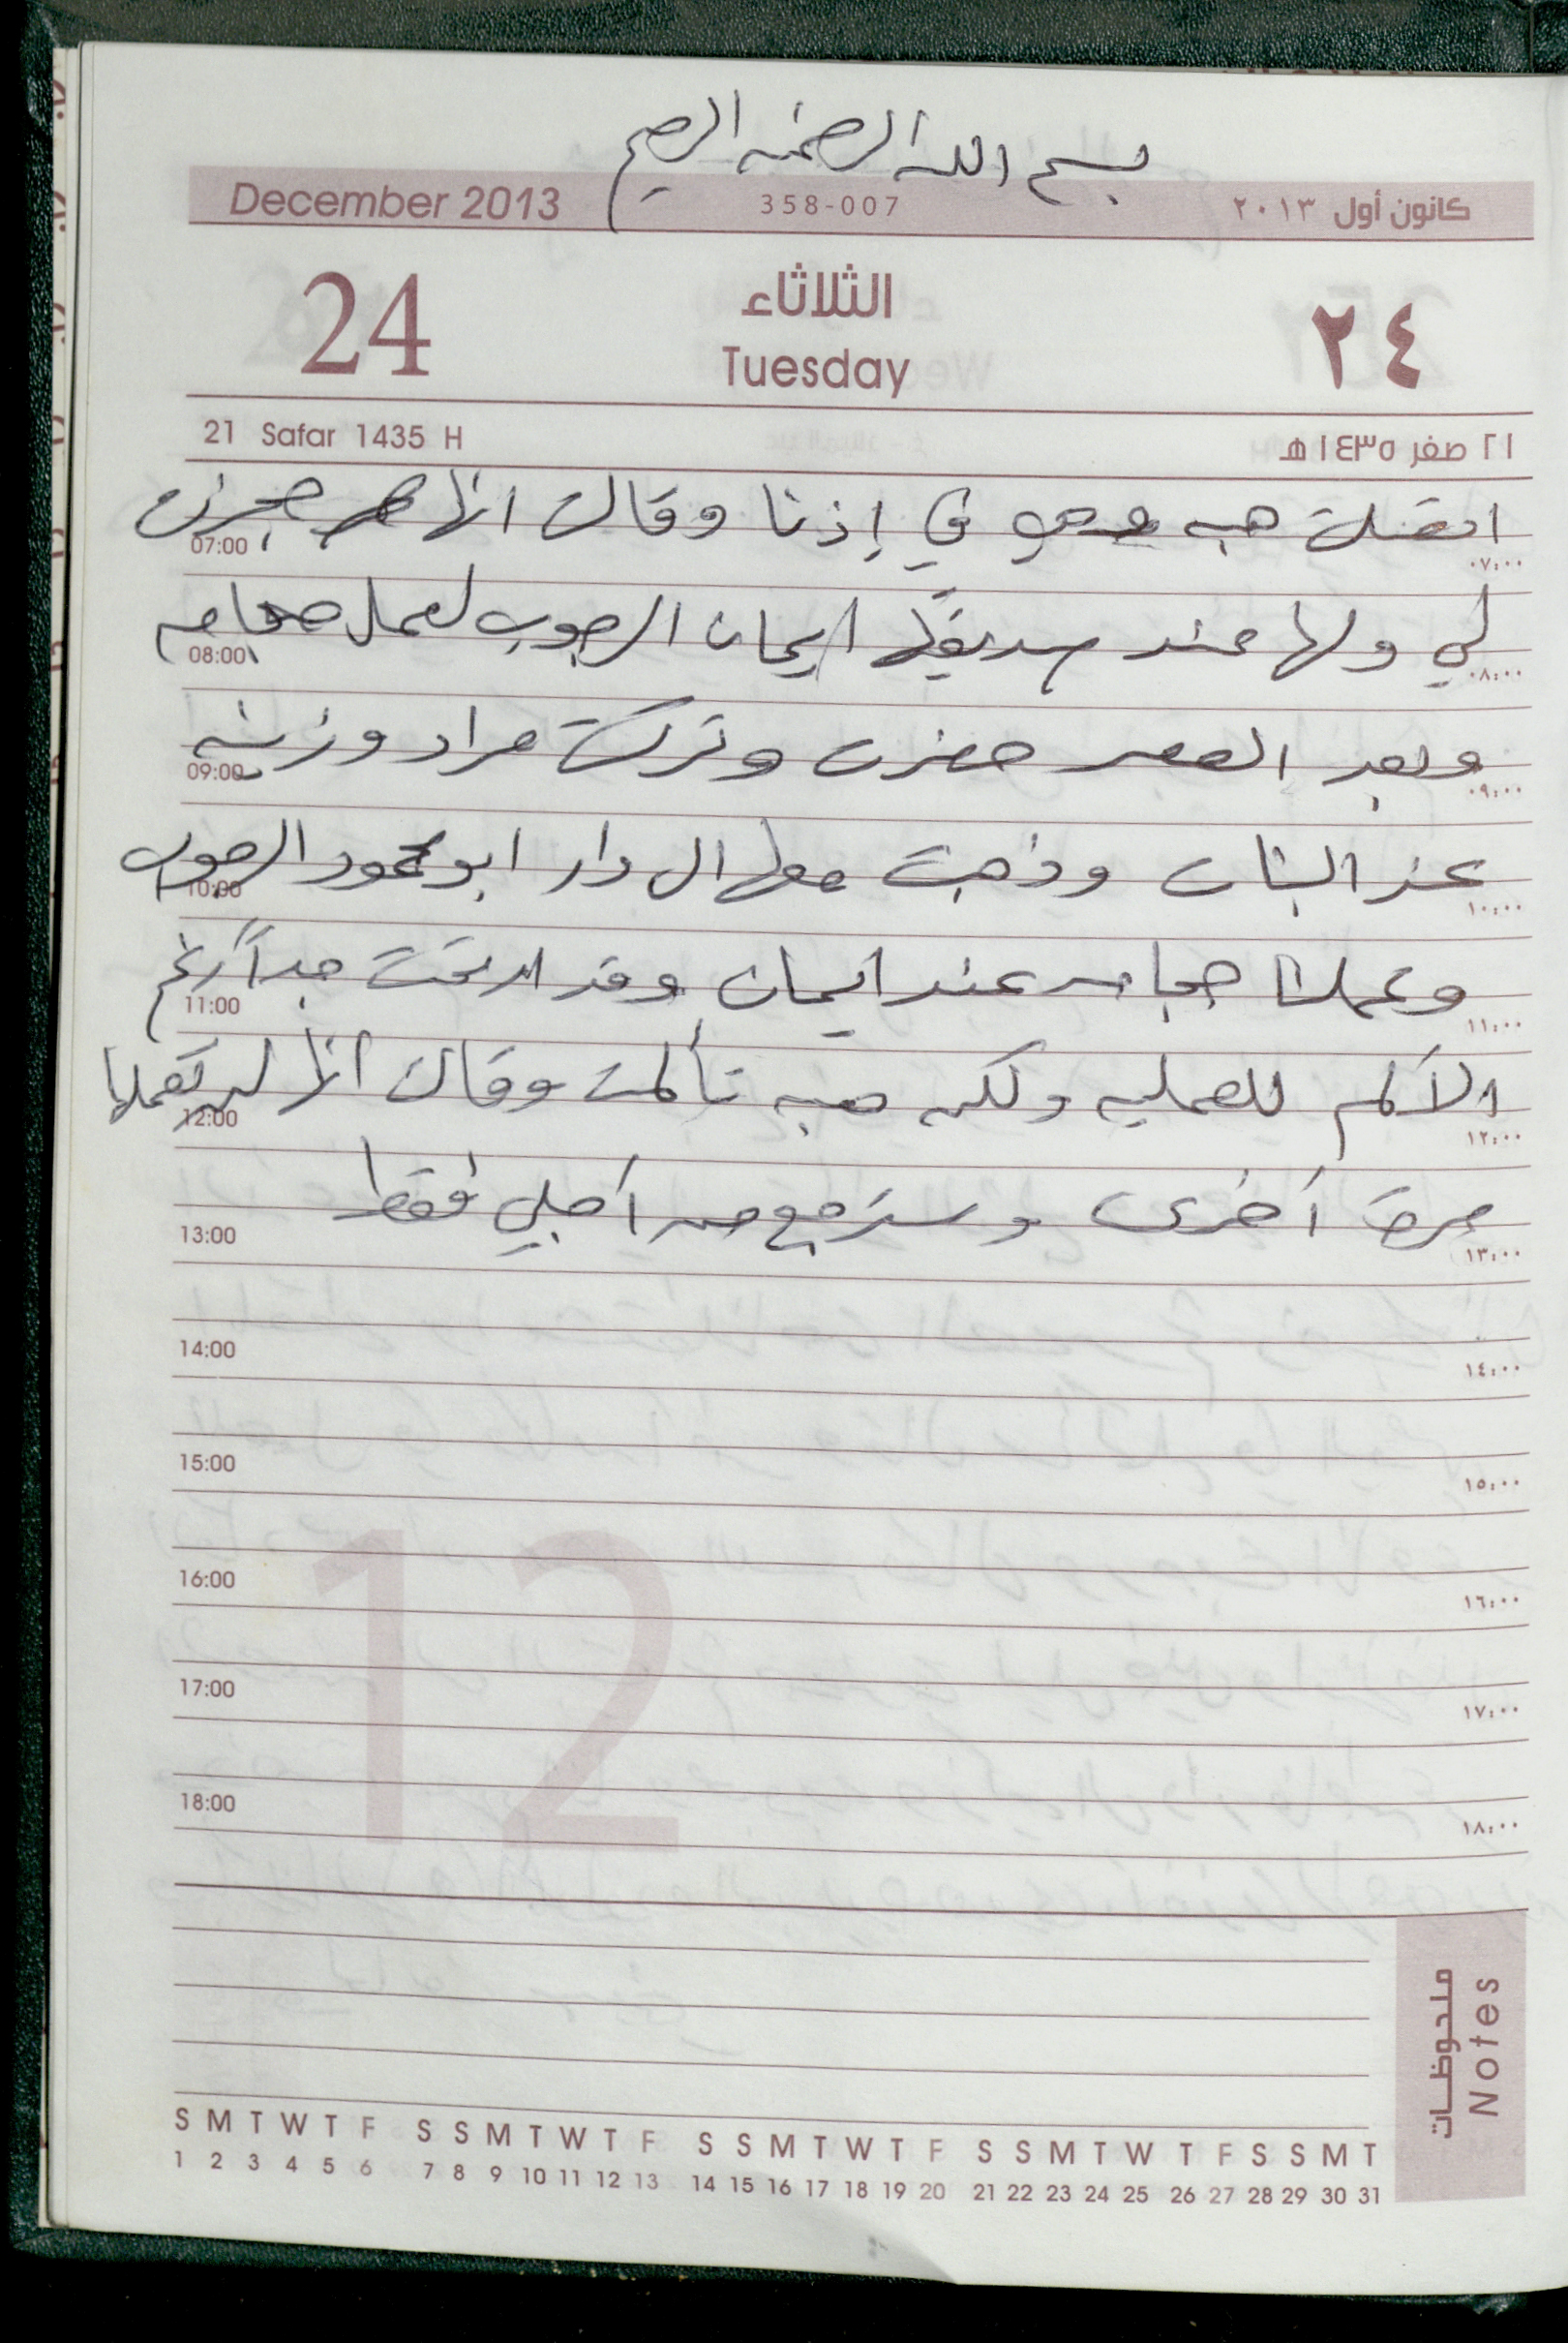 بسم الله الرحمن الرحيم
December 2013 358-007 كانون أول ٢٠١٣
24 الثلاثاء Tuesday ٢٤
21 Safar 1435 H ٢١ صفر ١٤٣٥ هـ
اتصلت هبه في إذنا وقالت انها حجزت
07:00 ٠٧:٠٠
لي ولها عند صديقتها ايمان الرجوب لعمل حجامه
08:00 ٠٨:٠٠
وبعد العصر حضرت وتركت مراد وزينه
09:00 ٠٩:٠٠
عند البنات وذهبت معها الى دار ابو محمود الرجوب
10:00 ١٠:٠٠
وعملنا حجامه عند ايمان وقد ارتحت جداً رغم
11:00 ١١:٠٠
الألم للعمليه ولكن هبه تألمت وقالت انها لن تعملها
12:00 ١٢:٠٠
مرة أخرى وسترجع من أجلي فقط
13:00 ١٣:٠٠
14:00 ١٤:٠٠
15:00 ١٥:٠٠
16:00 ١٦:٠٠
17:00 ١٧:٠٠
18:00 ١٨:٠٠
12
ملحوظات Notes
S M T W T F S S M T W T F S S M T W T F S S M T W T F S S M T
1 2 3 4 5 6 7 8 9 10 11 12 13 14 15 16 17 18 19 20 21 22 23 24 25 26 27 28 29 30 31